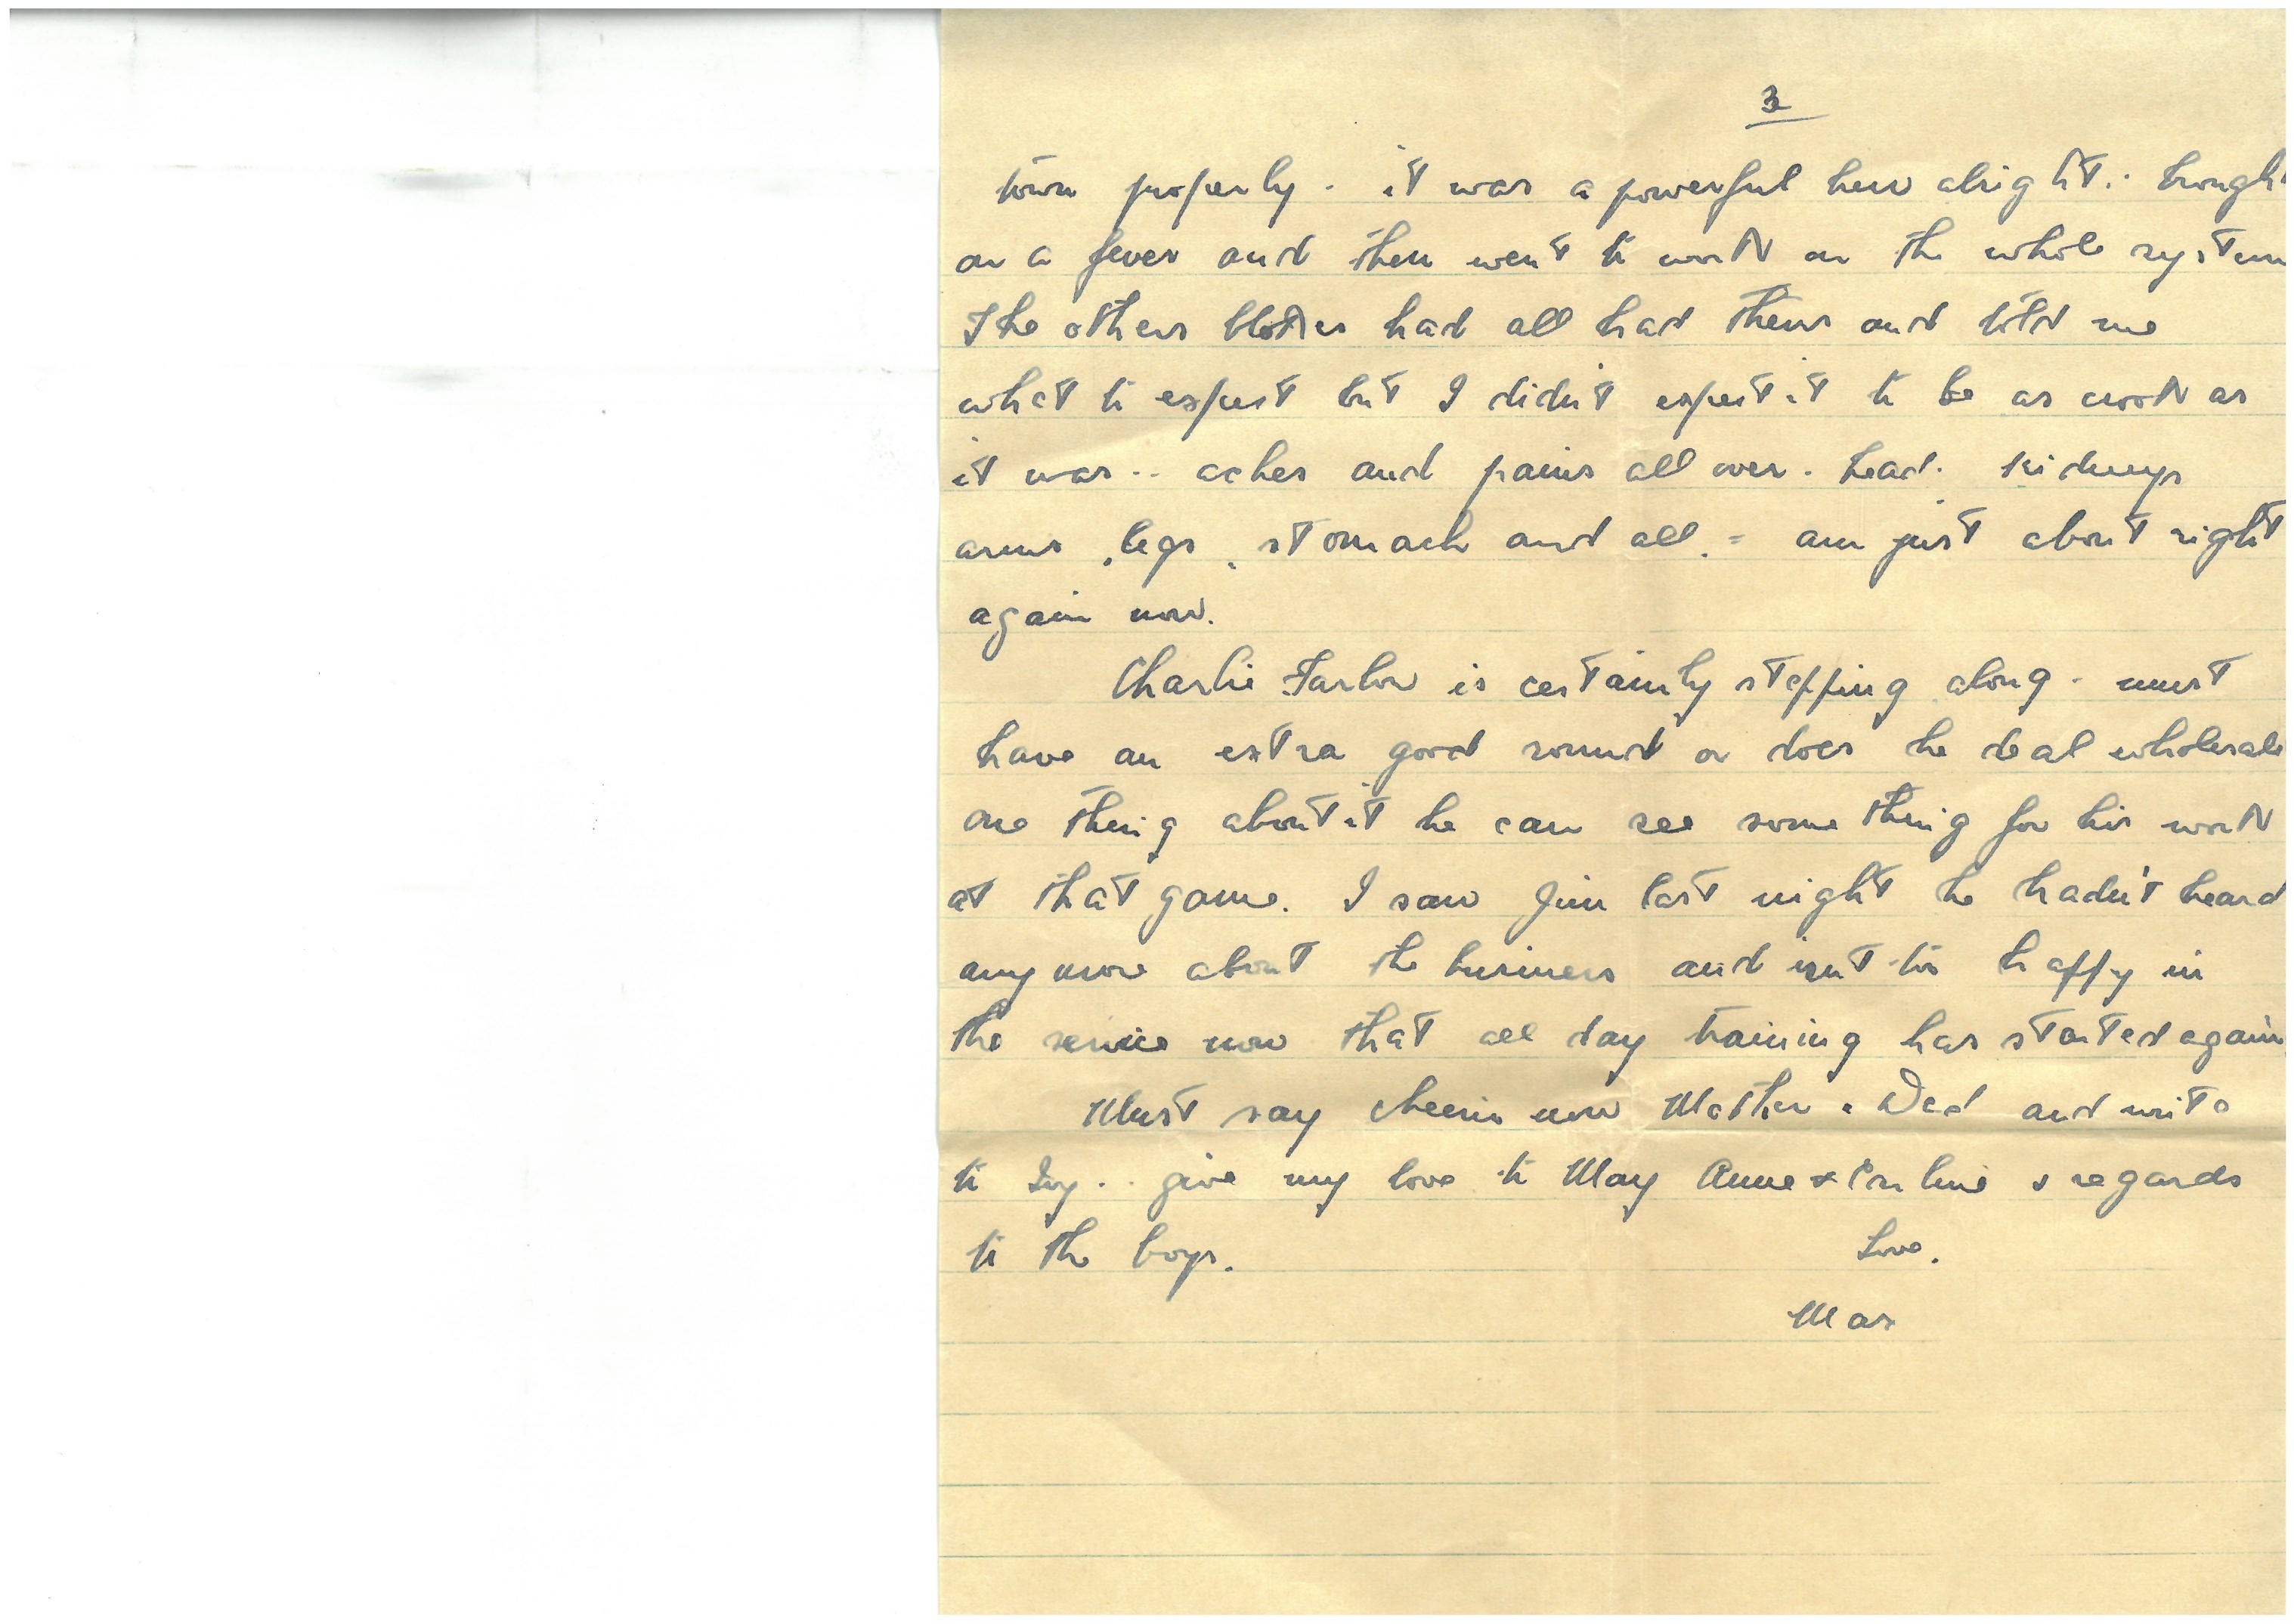 3
town properly. it was a powerful brew alright.. brought
on a fever and then went to work on the whole system
The others blokes had all had theirs and told me
what to expect but I didn't expect it to be as crook as
it was .. aches and pains all over. head. kidneys
arms, legs, stomach and all. - am just about right
again now.
Charlie Farlow is certainly stepping along. must
have an extra good round or does he deal wholesale
one thing about it he can see something for his work
at that game. I saw Jim last night he hadn't heard
any more about the business and isn't too happy in
the service now that all day training has started again
Must say cheerio now Mother & Dad and write
to Ivy .. give my love to May Anne & & regards
to the boys.
Love.
Max